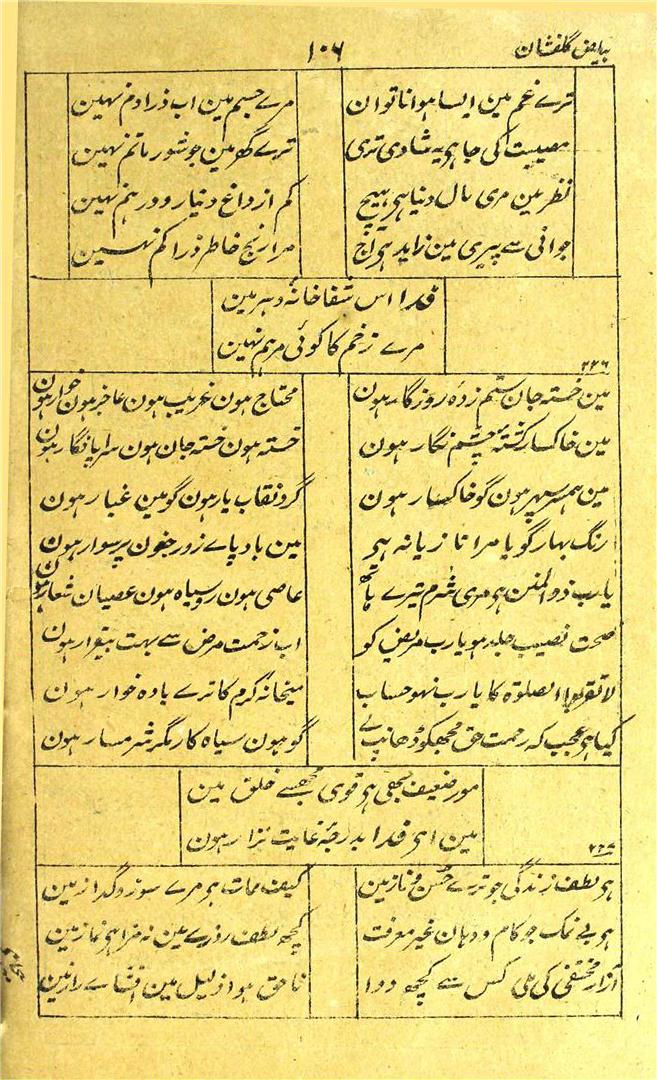 بیاض گلفشان
۱۰۶
ترے غم مین ایسا ہوا ناتوان
مرے جسم مین اب ذرا دم نہین
مصیبت کی جا ہی یہ شادی تری
ترے گھر مین جو شور ماتم نہین
نظر مین مری مال دنیا ہی ہیچ
کم از داغ دنیار و درہم نہین
جوانی سے پیری مین زاید ہی آج
مرا رنج خاطر ذرا کم نہین
فدا اس شفاخانۂ دہر مین
مرے زخم کا کوئی مرہم نہین
۲۲۶
مین خستہ جان ستم زدۂ روزگار ہون
محتاج ہون غریب ہون عاجز ہون خوار ہون
مین خاکسار کشتۂ چشم نگار ہون
خستہ ہون خستہ جان ہون سراپا نگار ہون
مین ہمسر سپہر ہون گو خاکسار ہون
گرد نقاب یار ہون گو مین غبار ہون
رنگ بہار گویا مرا تازیانہ ہی
مین باد پاے زور جنون پر سوار ہون
یا رب ذو المنن ہی مری شرم تیرے ہاتھ
عاصی ہون رو سیاہ ہون عصیان شعار ہون
صحت نصیب جلد ہو یا رب مریض کو
اب زحمت مرض سے بہت بیقرار ہون
لا تقربوا الصلوٰۃ کا یا رب نہو حساب
میخانۂ کرم کا ترے بادہ خوار ہون
کیا ہی عجب کہ رحمت حق مجھکو ڈھانپ لے
گو ہون سیاہ کار مگر شرمسار ہون
مور ضعیف بھی ہی قوی مجھسے خلق مین
مین اے فدا بدرجۂ غایت نزار ہون
۲۲۷
ہی لطف زندگی جو ترے حسن و ناز مین
کیف ممات ہی مرے سوز و گداز مین
ہی بے نمک جو کام و دہان غیر معرفت
کچھ لطف روزے مین نہ مزا ہی نماز مین
آزار مخفی کی ملی کس سے کچھ دوا
ناحق ہوا ذلیل مین افشاے راز مین